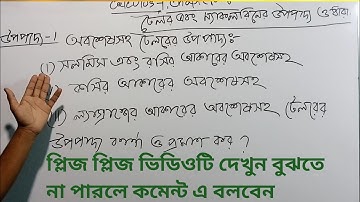 টেলর এবং ম্যাকলরিনের উপপাদ্য ও ধারা
উপপাদ্য-1 অবশেষসহ টেলরের উপপাদ্যঃ
(i) সলমিস এবং রসির আকারের অবশেষসহ
কসির আকারের অবশেষসহ
ল্যাগ্রাঞ্জের আকারের অবশেষসহ টেলরের
উপপাদ্য বর্ণনা ও প্রমাণ কর ?
প্লিজ প্লিজ ভিডিওটি দেখুন বুঝতে
না পারলে কমেন্ট এ বলবেন